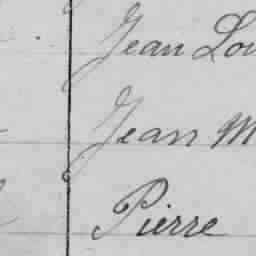 Jean Lou
Jean M
Pierre